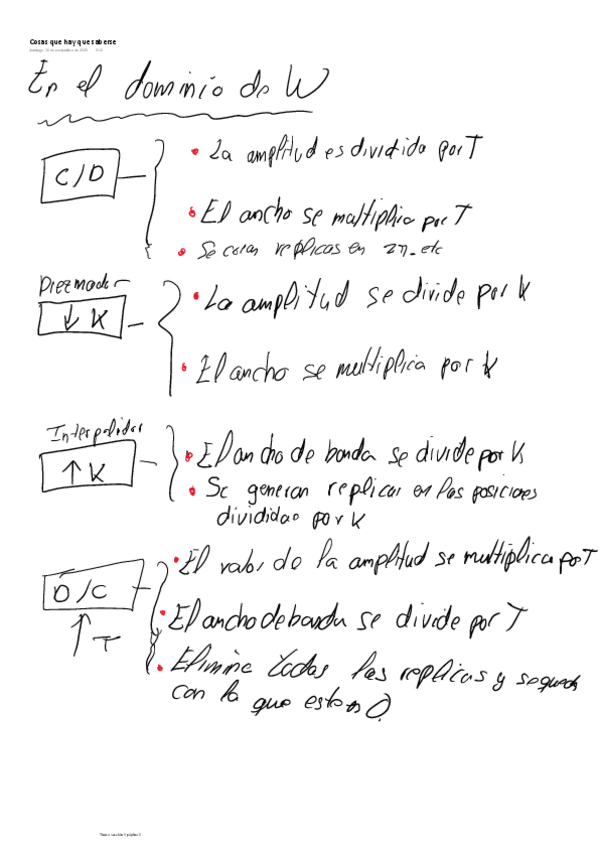 Cosas que hay que saberse
En el dominio de W
C/D
• La amplitud es dividido por T
• El ancho se multiplica por T
• Se crean replicas en 2π. etc
Diezmador
↓ K
• La amplitud se divide por K
• El ancho se multiplica por K
Interpolador
↑ K
• El ancho de banda se divide por K
• Se generan replicas en las posiciones
divididas por K
D/C
↑ T
• El valor de la amplitud se multiplica por T
• El ancho de banda se divide por T
• Elimina todas las replicas y se queda
con la que esta en 0.